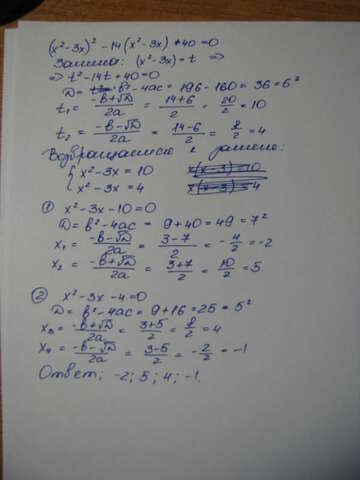 (x²-3x)² -14(x²-3x)+40=0
Замена: (x²-3x)=t ⇒
⇒ t²-14t+40=0
D= b²-4ac = 196-160 = 36 = 6²
t₁ = (-b+√D)/2a = (14+6)/2 = 20/2 = 10
t₂ = (-b-√D)/2a = (14-6)/2 = 8/2 = 4
Возвращаемся к замене:
{ x²-3x = 10 x(x-3)=10
{ x²-3x = 4 x(x-3)=4
① x²-3x-10=0
D= b²-4ac = 9+40=49=7²
x₁ = (-b-√D)/2a = (3-7)/2 = -4/2 = -2
x₂ = (-b+√D)/2a = (3+7)/2 = 10/2 = 5
② x²-3x-4=0
D= b²-4ac = 9+16=25=5²
x₃ = (-b+√D)/2a = (3+5)/2 = 8/2 = 4
x₄ = (-b-√D)/2a = (3-5)/2 = -2/2 = -1
Ответ: -2; 5; 4; -1.